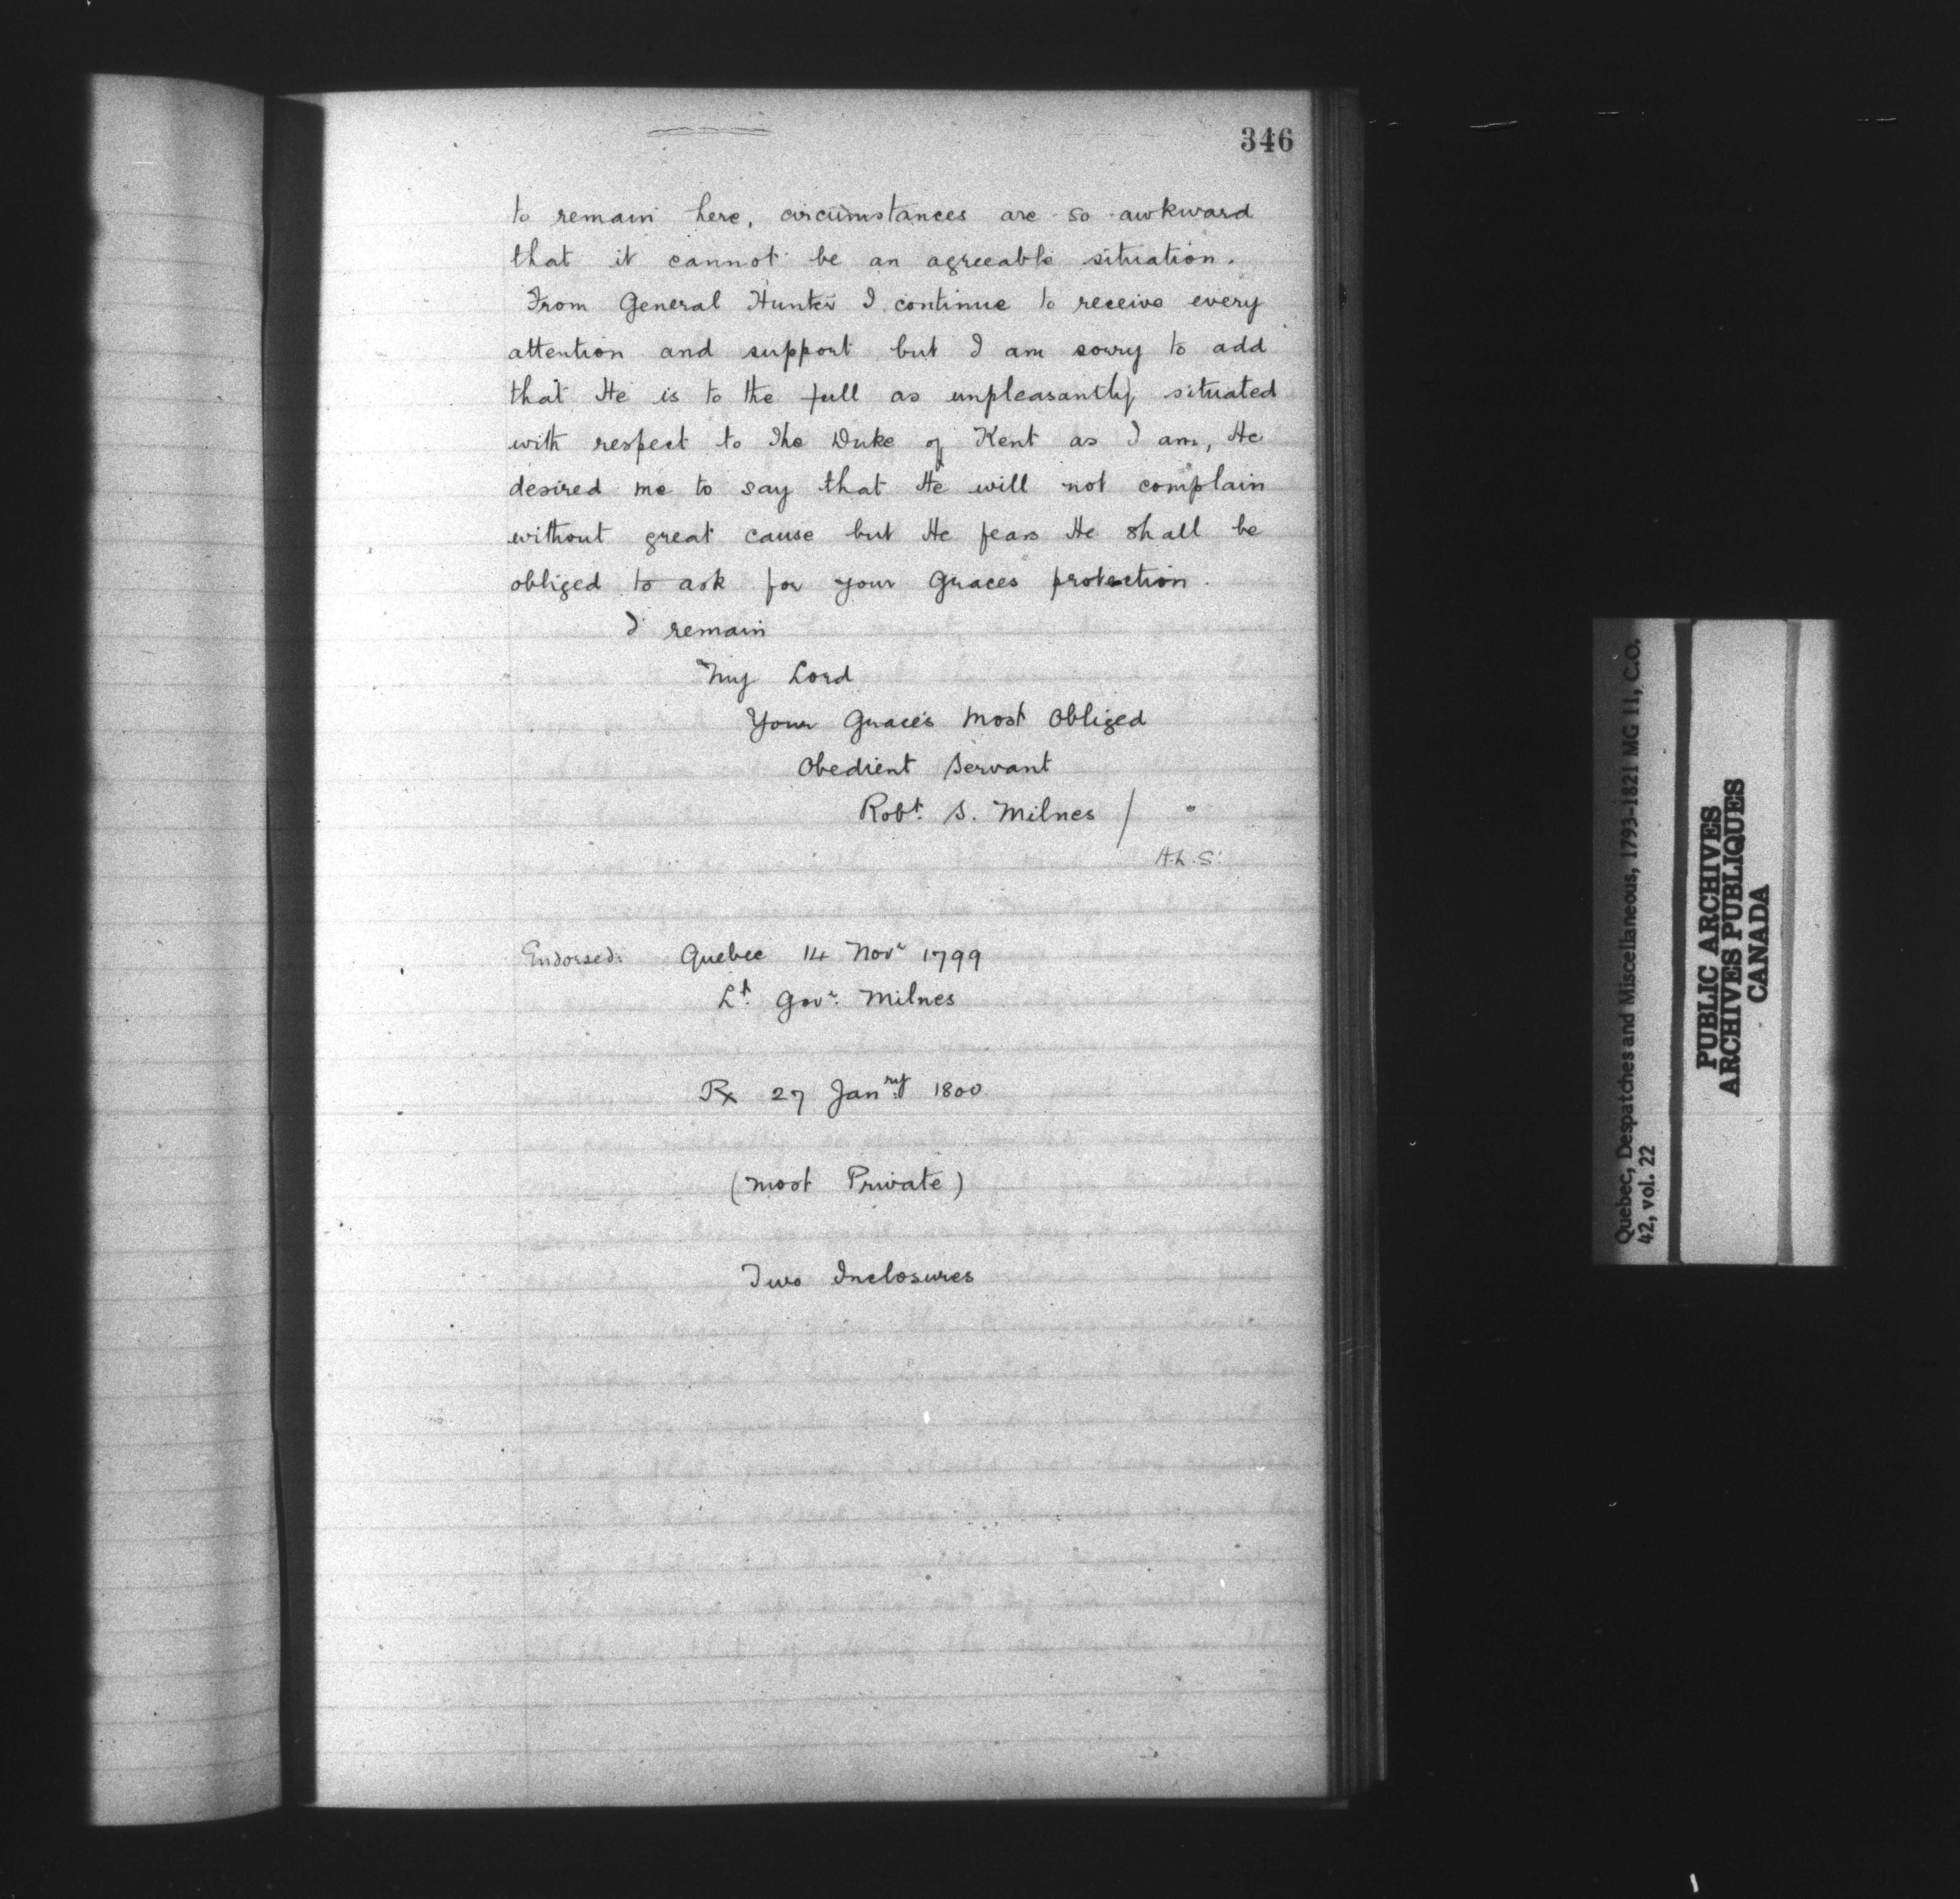 346
to remain here, circumstances are so awkward
that it cannot be an agreeable situation.
From General Hunter I continue to receive every
attention and support but I am sorry to add
that He is to the full as unpleasantly situated
with respect to The Duke of Kent as I am, He
desired me to say that He will not complain
without great cause but He fears He shall be
obliged to ask for your Graces protection.
I remain
My Lord
Your Grace's Most Obliged
Obedient Servant
Robt. S. Milnes /
H.L.S.
Endorsed: Quebec 14 Novr 1799
Lt. Govr. Milnes
Rx 27 Janry 1800
(Most Private)
Two Inclosures
Quebec, Despatches and Miscellaneous, 1793-1821 MG 11, C.O.
42, vol. 22
PUBLIC ARCHIVES
ARCHIVES PUBLIQUES
CANADA